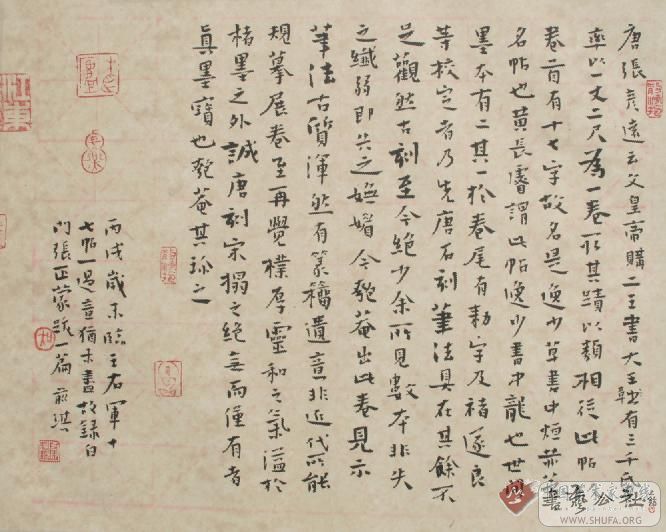 唐張彥遠云文皇帝購二王書大王艸有三千紙
率以一丈二尺為一卷取其蹟以類相從此帖
卷首有十七字故名是逸少草書中烜赫著
名帖也黃長睿謂此帖逸少書中龍也世間
墨本有二其一於卷尾有勅字及褚遂良
等校定者乃先唐石刻筆法具在其餘不
足觀然古刻至今絕少余所見數本非失
之纖弱即失之嫵媚今匏菴出此卷見示
筆法古質渾然有篆籀遺意非近代所能
規摹展卷至再覺樸厚靈和之氣溢於
楮墨之外誠唐刻宋搨之絕無而僅有者
真墨寶也匏菴其珍之
丙戌歲末臨王右軍十
七帖一過意猶未盡故錄白
門張正蒙跋一篇
WWW.SHUFA.ORG